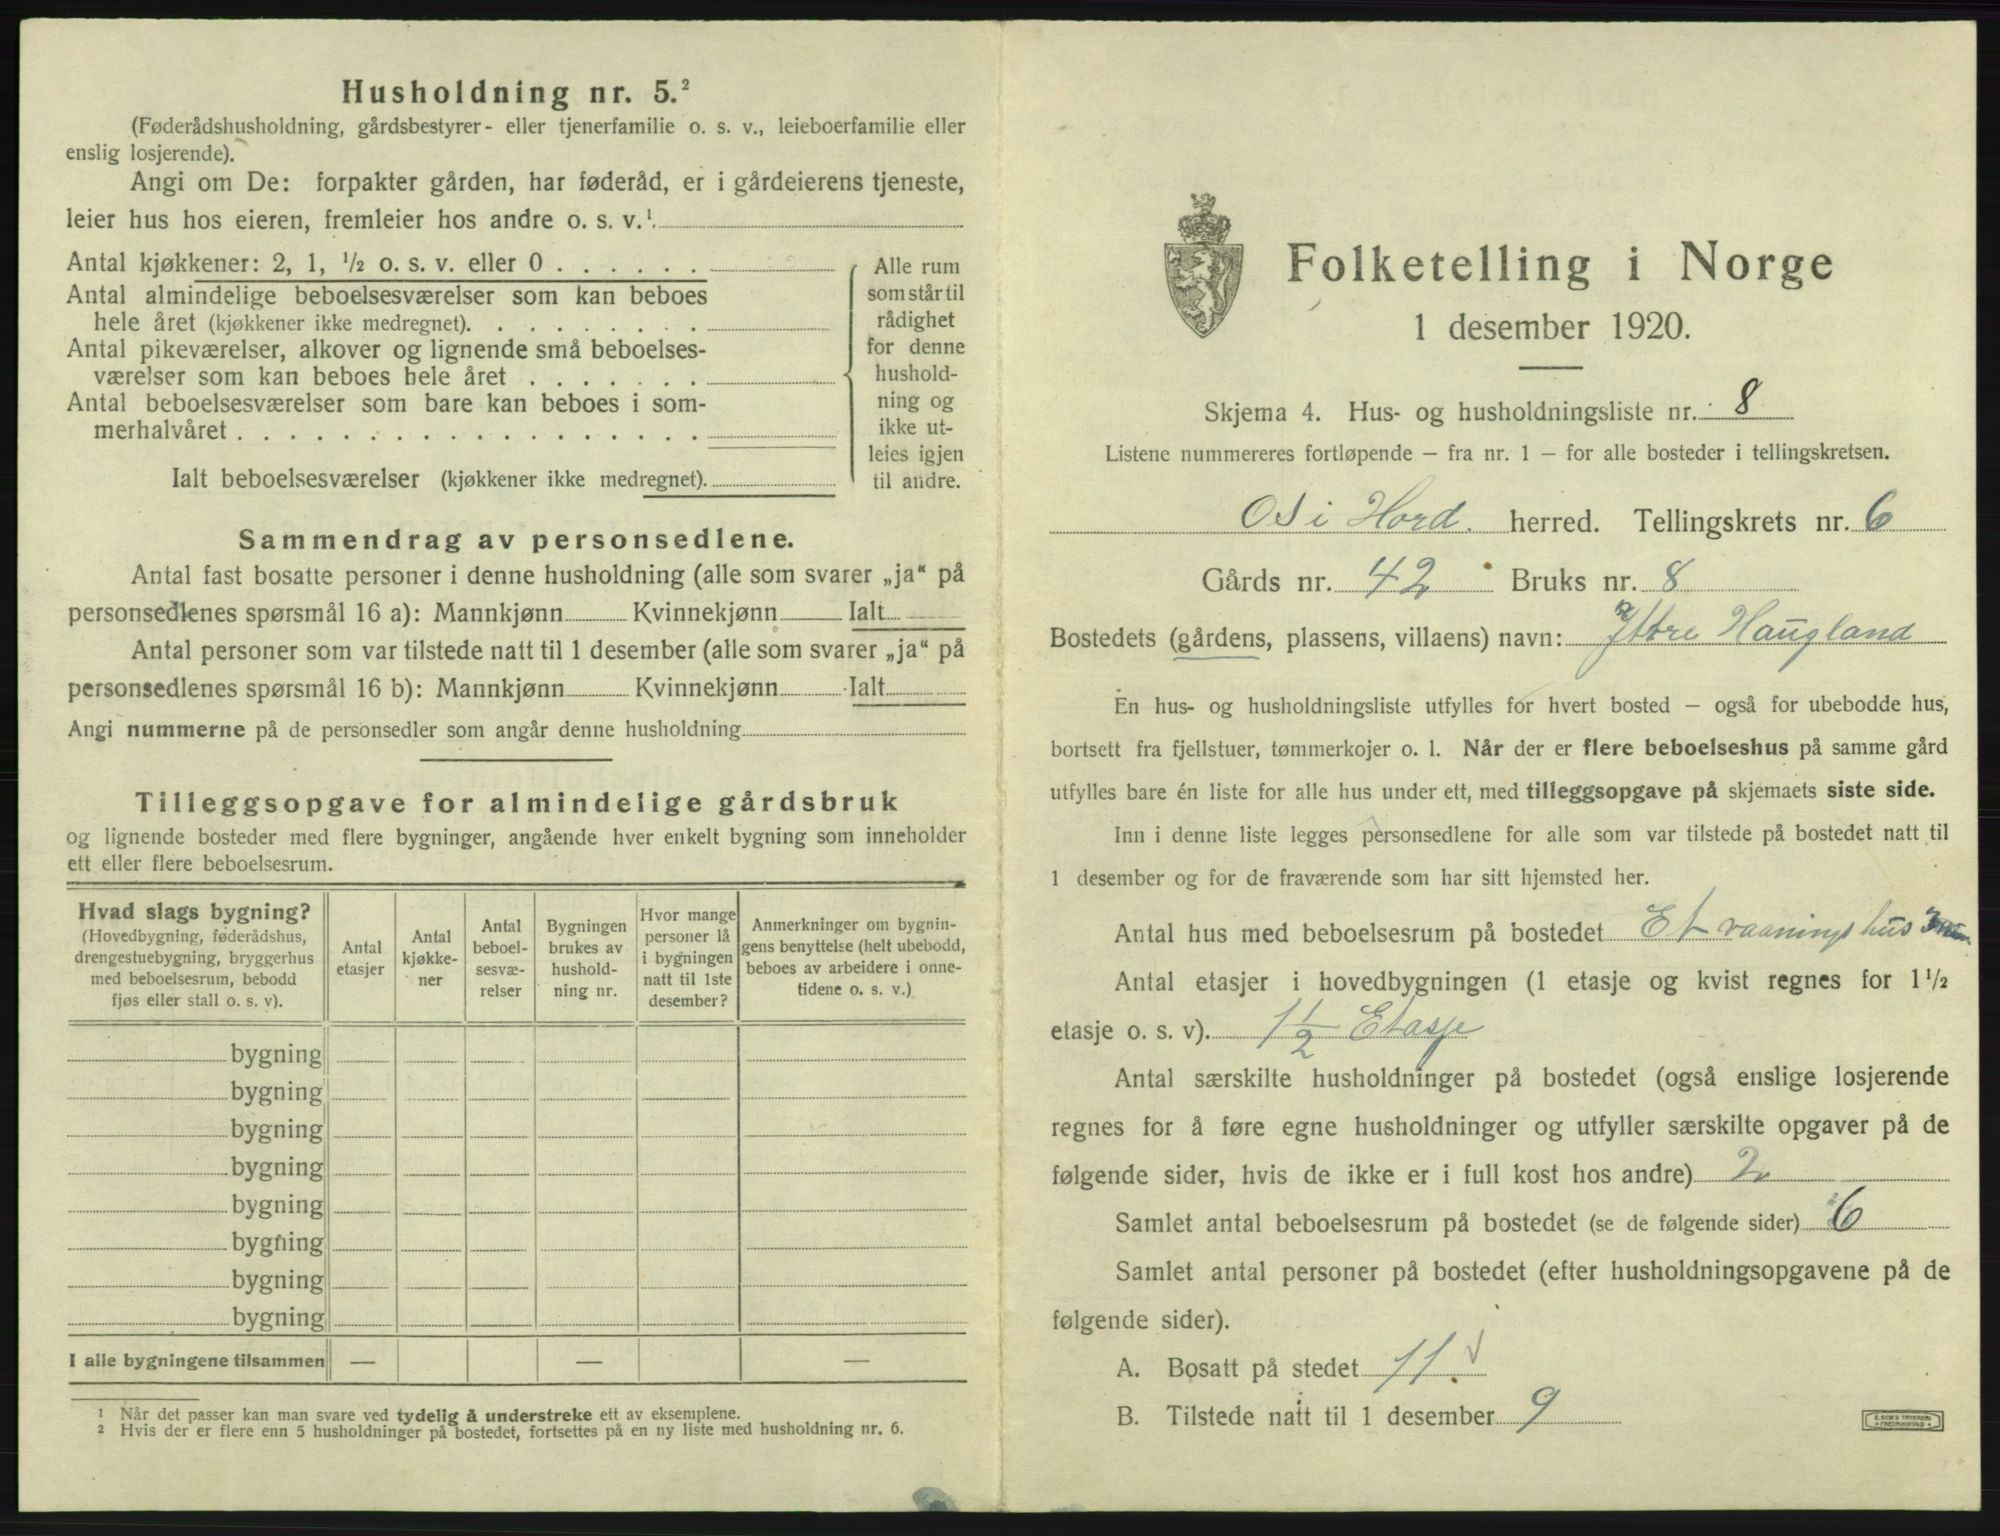 Husholdning nr. 5.²
(Føderådshusholdning, gårdsbestyrer- eller tjenerfamilie o. s. v., leieboerfamilie eller
enslig losjerende).
Angi om De: forpakter gården, har føderåd, er i gårdeierens tjeneste,
leier hus hos eieren, fremleier hos andre o. s. v.¹
Antal kjøkkener: 2, 1, ½ o. s. v. eller 0 . . . . . .
Antal almindelige beboelsesværelser som kan beboes
hele året (kjøkkener ikke medregnet). . . . . . . . .
Antal pikeværelser, alkover og lignende små beboelses-
værelser som kan beboes hele året . . . . . . .
Antal beboelsesværelser som bare kan beboes i som-
merhalvåret . . . . . . . . . . . . . . . . . .
Ialt beboelsesværelser (kjøkkener ikke medregnet).
Alle rum
som står til
rådighet
for denne
hushold-
ning og
ikke ut-
leies igjen
til andre.
Sammendrag av personsedlene.
Antal fast bosatte personer i denne husholdning (alle som svarer „ja“ på
personsedlenes spørsmål 16 a): Mannkjønn Kvinnekjønn Ialt
Antal personer som var tilstede natt til 1 desember (alle som svarer „ja“ på
personsedlenes spørsmål 16 b): Mannkjønn Kvinnekjønn Ialt
Angi nummerne på de personsedler som angår denne husholdning
Tilleggsopgave for almindelige gårdsbruk
og lignende bosteder med flere bygninger, angående hver enkelt bygning som inneholder
ett eller flere beboelsesrum.
Hvad slags bygning?
(Hovedbygning, føderådshus,
drengestuebygning, bryggerhus
med beboelsesrum, bebodd
fjøs eller stall o. s. v).
Antal
etasjer
Antal
kjøkke-
ner
Antal
beboel-
sesvæ-
relser
Bygningen
brukes av
hushold-
ning nr.
Hvor mange
personer lå
i bygningen
natt til 1ste
desember?
Anmerkninger om bygnin-
gens benyttelse (helt ubebodd,
beboes av arbeidere i onne-
tidene o. s. v.)
bygning
bygning
bygning
bygning
bygning
bygning
bygning
bygning
I alle bygningene tilsammen — — —
¹ Når det passer kan man svare ved tydelig å understreke ett av eksemplene.
² Hvis der er flere enn 5 husholdninger på bostedet, fortsettes på en ny liste med husholdning nr. 6.
Folketelling i Norge
1 desember 1920.
Skjema 4. Hus- og husholdningsliste nr. 8
Listene nummereres fortløpende – fra nr. 1 – for alle bosteder i tellingskretsen.
Os i Hord. herred. Tellingskrets nr. 6
Gårds nr. 42 Bruks nr. 8
Bostedets (gårdens, plassens, villaens) navn: Yttre Haugland
En hus- og husholdningsliste utfylles for hvert bosted – også for ubebodde hus,
bortsett fra fjellstuer, tømmerkojer o. l. Når der er flere beboelseshus på samme gård
utfylles bare én liste for alle hus under ett, med tilleggsopgave på skjemaets siste side.
Inn i denne liste legges personsedlene for alle som var tilstede på bostedet natt til
1 desember og for de fraværende som har sitt hjemsted her.
Antal hus med beboelsesrum på bostedet Et vaaningshus
Antal etasjer i hovedbygningen (1 etasje og kvist regnes for 1½
etasje o. s. v). 1½ Etasje
Antal særskilte husholdninger på bostedet (også enslige losjerende
regnes for å føre egne husholdninger og utfyller særskilte opgaver på de
følgende sider, hvis de ikke er i full kost hos andre) 2
Samlet antal beboelsesrum på bostedet (se de følgende sider) 6
Samlet antal personer på bostedet (efter husholdningsopgavene på de
følgende sider).
A. Bosatt på stedet 11
B. Tilstede natt til 1 desember 9